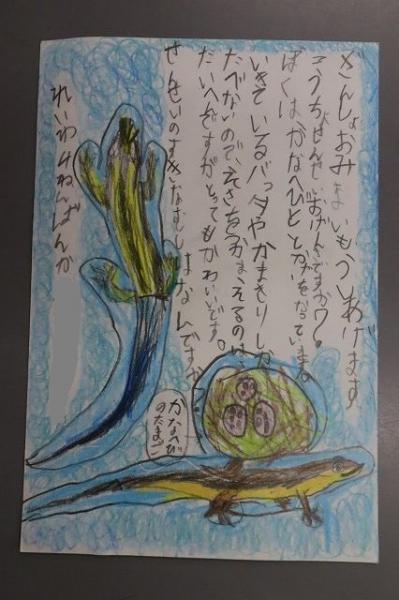 ざんしょおみまいもうしあげます
こうちょせんせいおげんきですか?
ぼくはかなへびととかげをかっています
いきているバッタやかまきりしか
たべないので、えさをつかまえるのは
たいへんですがとってもかわいいです。
せんせいのすきなむしはなんですか
れいわ ねん ばんか
かなへび
のたまご